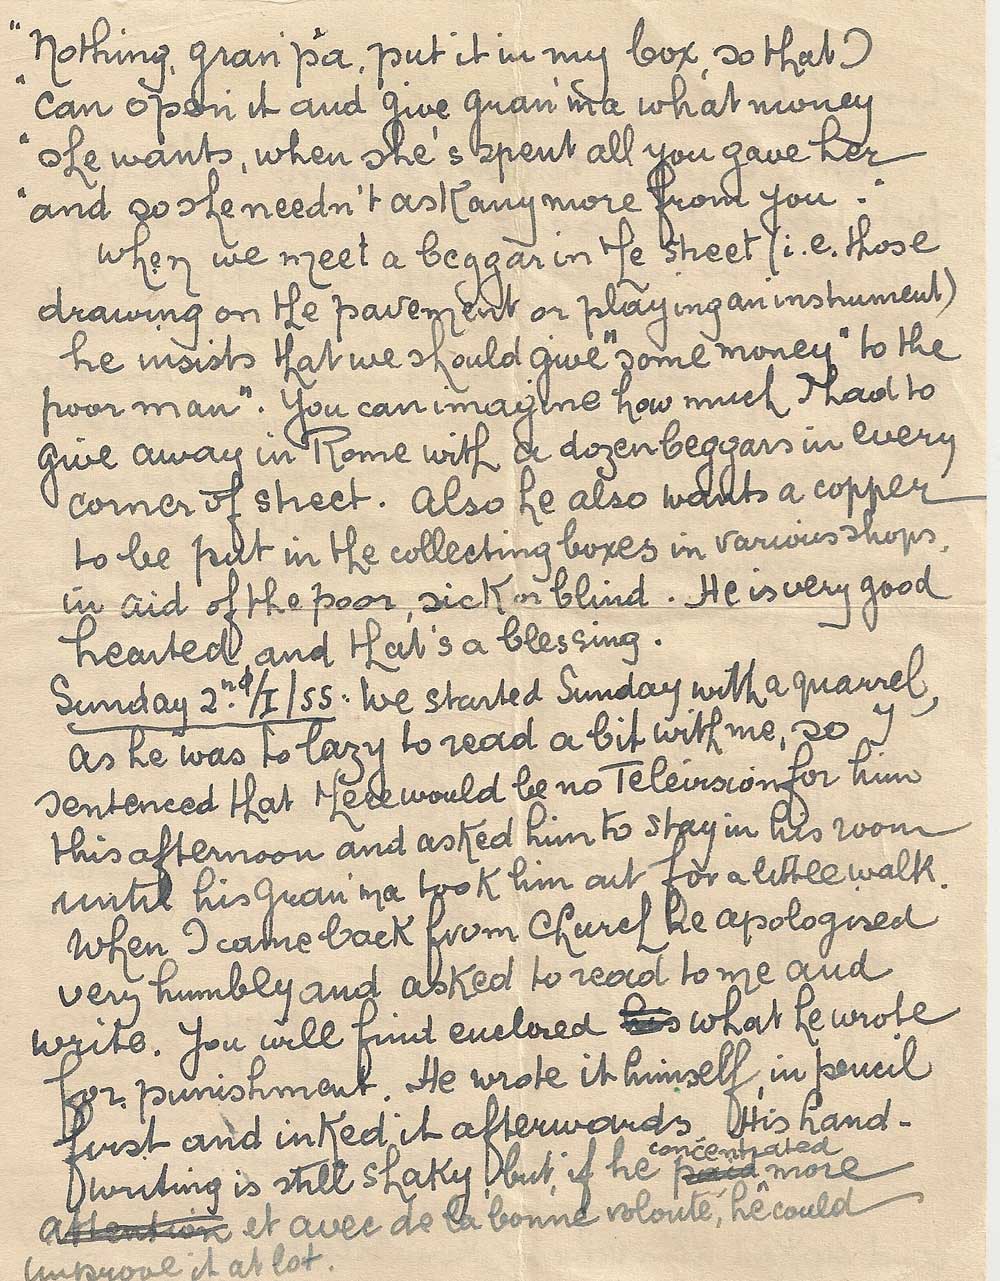 "Nothing, gran'pa, put it in my box, so that I
"can open it and give gran'ma what money
"she wants, when she's spent all you gave her
"and so she needn't ask any more from you."
When we meet a beggar in the street (i.e. those
drawing on the pavement or playing an instrument)
he insists that we should give "some money" to the
poor man". You can imagine how much I had to
give away in Rome with a dozen beggars in every
corner of street. Also he also wants a copper
to be put in the collecting boxes in various shops,
in aid of the poor, sick or blind. He is very good
hearted, and that's a blessing.
Sunday 2nd/I/55. We started Sunday with a quarrel,
as he was to lazy to read a bit with me, so I
sentenced that there would be no Televirsion for him
this afternoon and asked him to stay in his room
until his Gran'ma took him out for a little walk.
When I came back from Church he apologised
very humbly and asked to read to me and
write. You will find enclosed his what he wrote
for punishment. He wrote it himself, in pencil
first and inked it afterwards. His hand-
writing is still shaky, but, if he paid concentrated more
attention et avec de la bonne volonté, he could
improve it at lot.